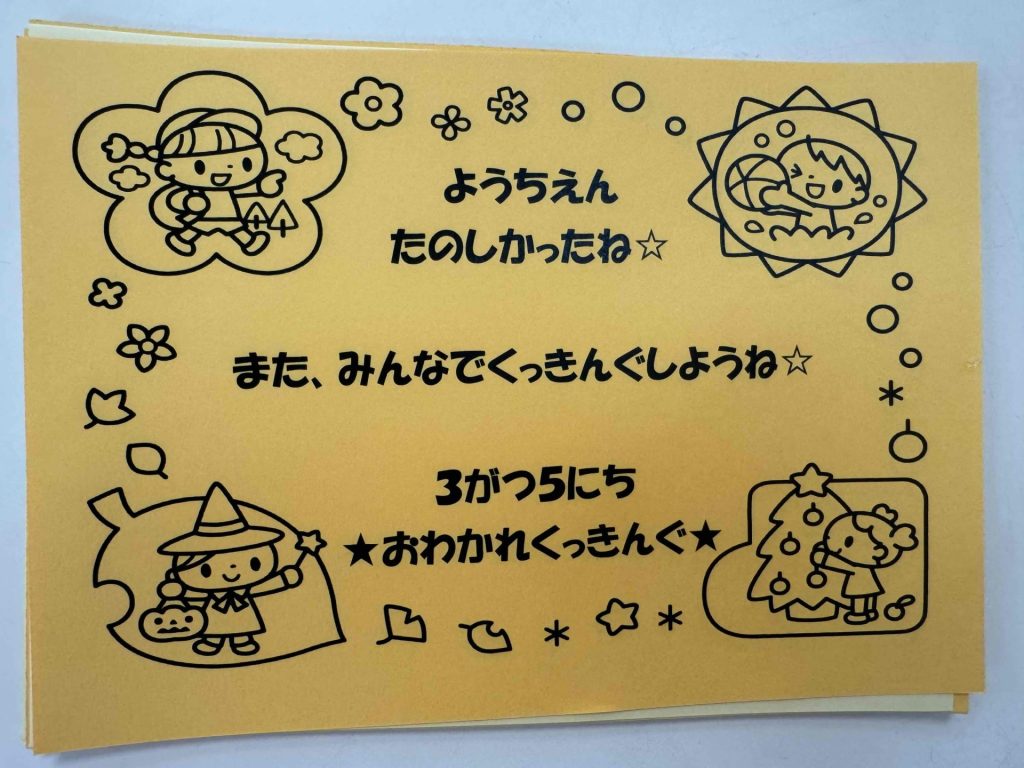 ようちえん
たのしかったね☆
また、みんなでくっきんぐしようね☆
3がつ5にち
★おわかれくっきんぐ★